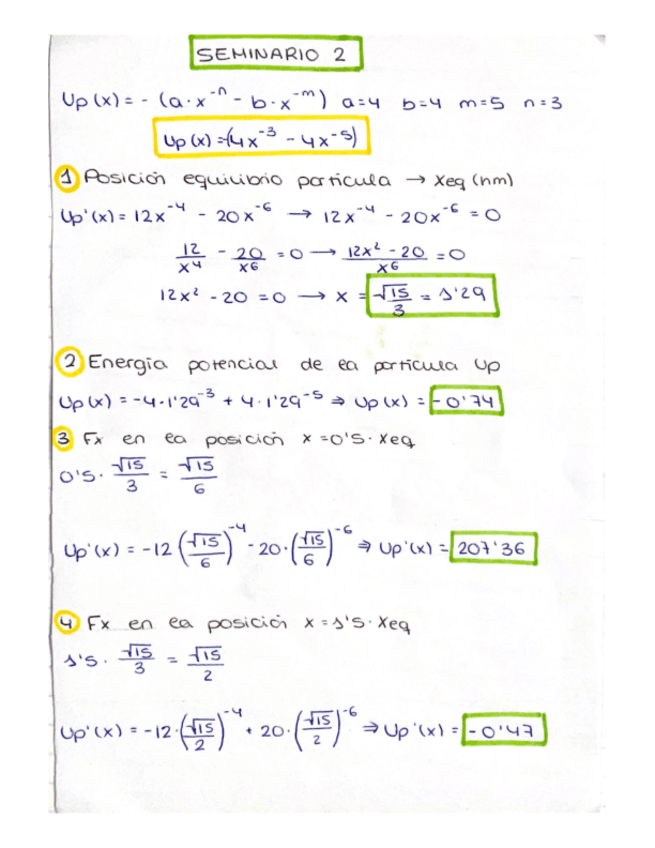 SEMINARIO 2
Up (x) = - (a · x⁻ⁿ - b · x⁻ᵐ) a=4 b=4 m=5 n=3
Up (x) = -(4x⁻³ - 4x⁻⁵)
1 Posición equilibrio partícula → Xeq (nm)
Up'(x) = 12x⁻⁴ - 20x⁻⁶ → 12x⁻⁴ - 20x⁻⁶ = 0
12/x⁴ - 20/x⁶ = 0 → (12x² - 20)/x⁶ = 0
12x² - 20 = 0 → x = √15/3 = 1'29
2 Energía potencial de la partícula Up
Up (x) = -4·1'29⁻³ + 4·1'29⁻⁵ ⇒ Up (x) = -0'74
3 Fx en la posición x = 0'5 · Xeq
0'5 · √15/3 = √15/6
Up'(x) = -12 (√15/6)⁻⁴ - 20·(√15/6)⁻⁶ ⇒ Up'(x) = 207'36
4 Fx en la posición x = 1'5 · Xeq
1'5 · √15/3 = √15/2
Up'(x) = -12·(√15/2)⁻⁴ + 20·(√15/2)⁻⁶ ⇒ Up'(x) = -0'47